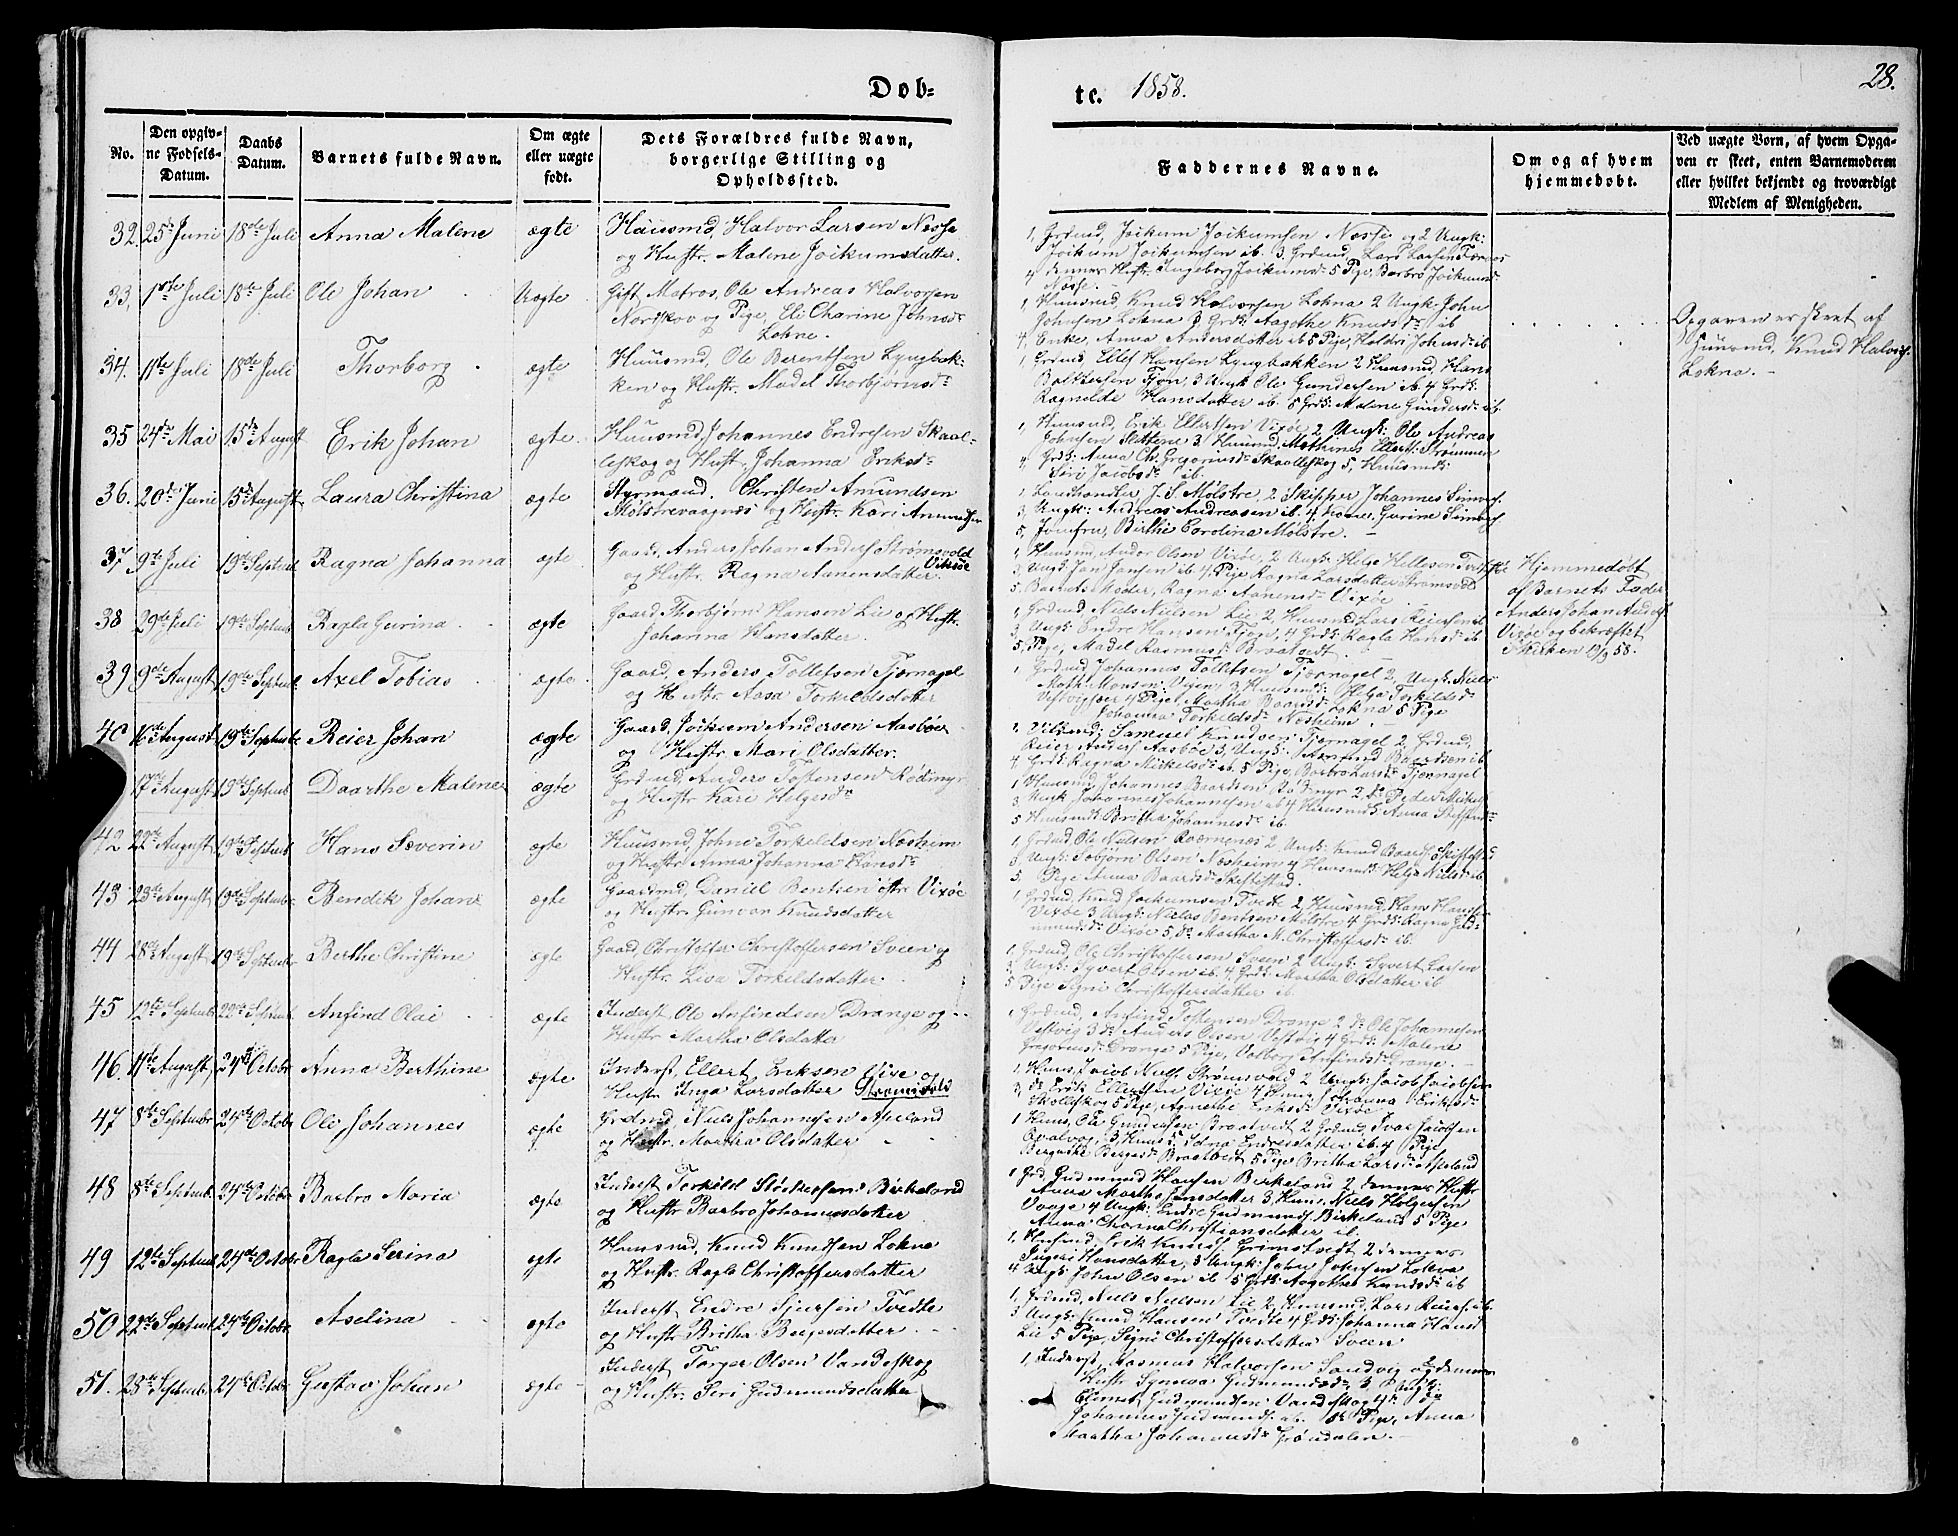 Dob-
te. 1858.
28.
No.
Den opgiv-
ne Fødsels-
Datum.
Daabs
Datum.
Barnets fulde Navn.
Om ægte
eller uægte
født.
Dets Forældres fulde Navn,
borgerlige Stilling og
Opholdssted.
Faddernes Navne.
Om og af hvem
hjemmedøbt.
Ved uægte Børn, af hvem Opga-
ven er skeet, enten Barnemoderen
eller hvilket bekjendt og troværdigt
Medlem af Menigheden.
32. 25de Juni 18de Juli Anna Malene ægte Huusmd, Halvor Larsen Nesse
og Hustr. Malene Joikumsdatter.
1, Grdmd, Joikum Joikumsen Nesse og 2 Ungk:
Joikum Joikumsen ib. 3. Grdmd, Lars Larsen
4 dennes Hustr. Ingeborg Joikumsd. 5 Pige, Barbro Joikumsd
Nesse.
33, 1ste Juli 18de Juli Ole Johan Uægte Gift Matros, Ole Andreas Halvorsen
Nordskov og Pige, Eli Charine Johnsdr
Lokne.
1, Huusmd, Knud Halvorsen Lokna 2 Ungk. John
Johnsen Lokna 3 Grdk: Aagothe Knudsdr ib
4, Enke, Anna Andersdatter ib 5 Pige, Johnsdr ib
Opgaven er skeet af
Huusmd, Knud Halvors.
Lokna.
34. 11te Juli 18de Juli Thorborg ægte Huusmd, Ole Berentsen Lyngbak-
ken og Hustr. Madel Thorbjørnsdr
1, Grdmd Ellef Hansen Lyngbakken 2 Huusmd, Hans
Baltzersen Fjon, 3 Ungk Ole Gundersen ib. 4 Grdk:
Ragnelde Hansdatter ib. 5 Grdk: Malene Gundersdr ib.
35 24de Mai 15de August Erik Johan ægte Huusmd, Johannes Endresen Skaal-
leskog og Hust. Johanna Eriksdr
1, Huusmd, Erik Ellertsen Vixøe 2 Ungk. Ole Andreas
Johnsen Slettene 3. Huusmd. Mathines Ellerts. Strømmen
4, Grdk: Anna Ch. Gregoriusdr Skaalleskog 5, Huusmdk:
Siri Jacobsdr ib.
36. 20de Juni 15de August Laura Christina ægte Styrmand. Christen Amundsen
Molstrevaagnæs og Hustr. Kari Amundsen
1, Landhandler, J. S. Mølstre, 2 Skipper Johannes
3, Ungk: Andreas Andreasen ib. 4 Kone, Gurine
5, Jomfru, Birthe Carolina Mølstre.
37 9de Juli 19de Septemb Ragna Johanna ægte Gaard, Anders Johan Anders. Strømsvold
og Hustr. Ragna Aanensdatter Vixøe
1, Huusmd, Andor Olsen Vixøe, 2 Ungk: Helge Hellesen
3 Ungk. Jan Jansen ib 4 Pige Ragna Larsdatter Strømsvold
5. Barnets Moder, Ragna Aanensd. Vixøe
Hjemmedøbt
af Barnets Fader
Anders Johan Anders.
Vixøe og bekræftet
i Kirken 19/9 58.
38 29de Juli 19de Septemb Ragla Gurina ægte Gaard Thorbjørn Hansen Lie og Hustr.
Johanna Hansdatter.
1, Grdmd, Niels Nielsen Lie 2, Huusmd. Lars Reiersen ib
3, Ungk: Endre Hansen Fjon, 4 Grdk: Ragla Hansdr ib
5, Pige, Madel Rasmusdr
39 9de August 19de Septemb Axel Tobias ægte Gaard, Anders Tollefsen Tjernagel
og Hustr Aasa Torkeldsdatter
1 Grdmd, Johannes Tollefsen Tjernagel 2, Ungk. Niels
Math Monsen Vixøe 3 Huusmdk: Helga Torkildsdr
Vestvig 4 Pige, Martha Baardsdr Lokna 5 Pige
Johanna Torkildsdr Nesheim.
40 16de August 19de Septemb Reier Johan ægte Gaard, Joikum Andersen Aasbøe
og Hustr Mari Olsdatter.
1, Samuel Knudsen Tjernagel 2 Grdmd,
Reier Anders. Aasbøe 3, Ungk: Amund Baardsen ib
4 Grdk: Ragna Mikkelsdr ib. 5 Pige, Barbro Larsdr Tjernagel
17de August 19de Septemb Daarthe Malene ægte Grdmd, Anders Tostensen Rødmyr
og Hustr Kari Helgesdr
1 Huusmd, Johannes Baardsen Rødmyr 2 do Peder
3 Ungk Johannes Johannesen ib 4 Huusmdk Anna
5 Huusmdk: Britha Johannesdr ib.
42 22de August 19de Septemb Hans Severin ægte Huusmd, Johne Torkeldsen Nesheim
og Hustr. Anna Johanna Hansdr
1, Grdmd Ole Nielsen 2 Ungk: Knud Baards.
3 Ungk: Tobjørn Olsen Nesheim 4 Huusmdk: Helga Nielsdr ib
5. Pige Anna Baardsdr
43 23de August 19de Septemb Bendik Johan ægte Gaardmd, Daniel Bentsen Vixøe
og Hustr Gunvor Knudsdatter
1, Grdmd, Knud Joikumsen Tvedt 2 Huusmd, Hans Hans.
Vixøe 3 Ungk: Nielas Bentsen Mølstre 4 Grdk: Ragna
Vixøe 5, do Martha M. Christoffersdr ib.
44 28de August 19de Septemb Berthe Christine ægte Gaard, Christoffer Christoffersen Sveen og
Hustr. Liva Torkeldsdatter.
1, Grdmd, Ole Christoffersen Sveen 2 Ungk: Syvert Larsen
3, Ungk: Syvert Olsen ib. 4, Grdk: Martha Olsdatter ib
5 Pige Signi Christoffersdatter ib.
45 12te Septemb 22de Septemb Anfind Olai ægte Inderst Ole Anfindsen Drange og
Hustr Martha Olsdatter
1, Grdmd, Anfind Tostensen Drange 2 do Ole Johannesen
Vestvig 3 do Anders Olsen Vestvig 4 Grdk: Malene
Gregoriusdr Drange 5 Pige, Valborg Anfindsdr Drange.
46. 11te August 24de Octobr Anna Berthine ægte Inderst Ellert Eriksen Vixe og
Hustr Inga Larsdatter Strømsvold
1, Huus, Jacob Niels. Strømsvold 2 Ungk: Jacob Jacobsen
3, do Erik Ellertsen Vixøe 4 Johanna Eriksdr
Skolleskog 5 Pige, Agnethe Eriksdr Vixøe
47 8de Septembr 24de Octobr Ole Johannes ægte Grdmd, Niels Johannesen Apeland
og Hustr. Martha Olsdatter
1 Huus, Ole Gundersen Braatvedt 2 Grdmd, Ivar Jacobsen
Ovalvog, 3, Huus Edna Endresdatter ib. 4 Pige,
Bergesdr Braatvedt 5 Pige Britha Larsdr Apeland
48 8de Septemb. 24de Octobr Barbro Maria ægte Inderst Torkild Størkersen Birkeland
og Hustr Barbro Johannesdatter
1, Grd, Gudmund Hansen Birkeland 2 dennes Hustr
Anna Martha Jansdatter 3 Huus, Niels Holgersen
Vaage 4 Ungk: Endre Gudmunds. Birkeland 5 Pige
Anna Charina Christiansdatter ib.
49 12te Septemb 24de Octobr Ragla Serina ægte Huusmd, Knud Knudsen Lokna
og Hustr. Ragla Christoffersdatter
1, Huusmd, Erik Knuds. Grimstvedt 2 dennes
Ingeri Hansdatter, 3 Ungk: John Johnsen Lokna
4 Ungk: John Olsen ib. 5 Grdk: Aagothe Knudsdr ib
50 22de Septemb 24de Octobr Aselina ægte Inderst, Endre Sjursen Tvedte
og Hustr Britha Bergesdatter
1, Grdmd, Niels Nielsen Lie 2, Huusmd, Lars Reiers. ib.
3 Ungk: Knud Hansen Tvedte 4 Grdk: Johanna Hansd
Lie 5 Pige, Signi Christoffersdatter Sveen
51. 28de Septemb 24de Octobr Gustav Johan ægte Inderst, Torger Olsen Vandeskog
og Hustr. Siri Gudmundsdatter
1, Inderst, Rasmus Halvorsen Sandvig og dennes
Hustr Synneva Gudmundsdr, 3, Ungk:
Clemet Gudmundsen Vandeskog 4 do
Johannes Gudmunds. ib. 5 Pige, Anna
Martha Johannesdr Grøndalen.